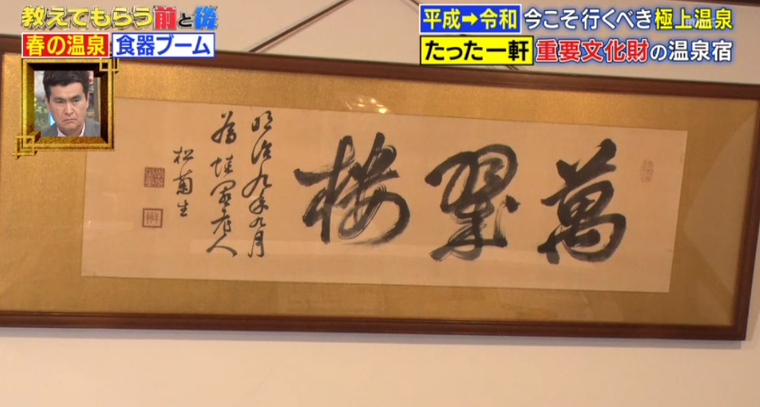 教えてもらう前と後
春の温泉 食器ブーム
平成➡令和 今こそ行くべき極上温泉
たった一軒 重要文化財の温泉宿
萬翠楼
明治九年九月
為蛙園老人
松菊生